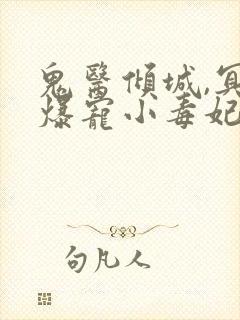 鬼醫傾城,冥
爆寵小毒妃
句凡人